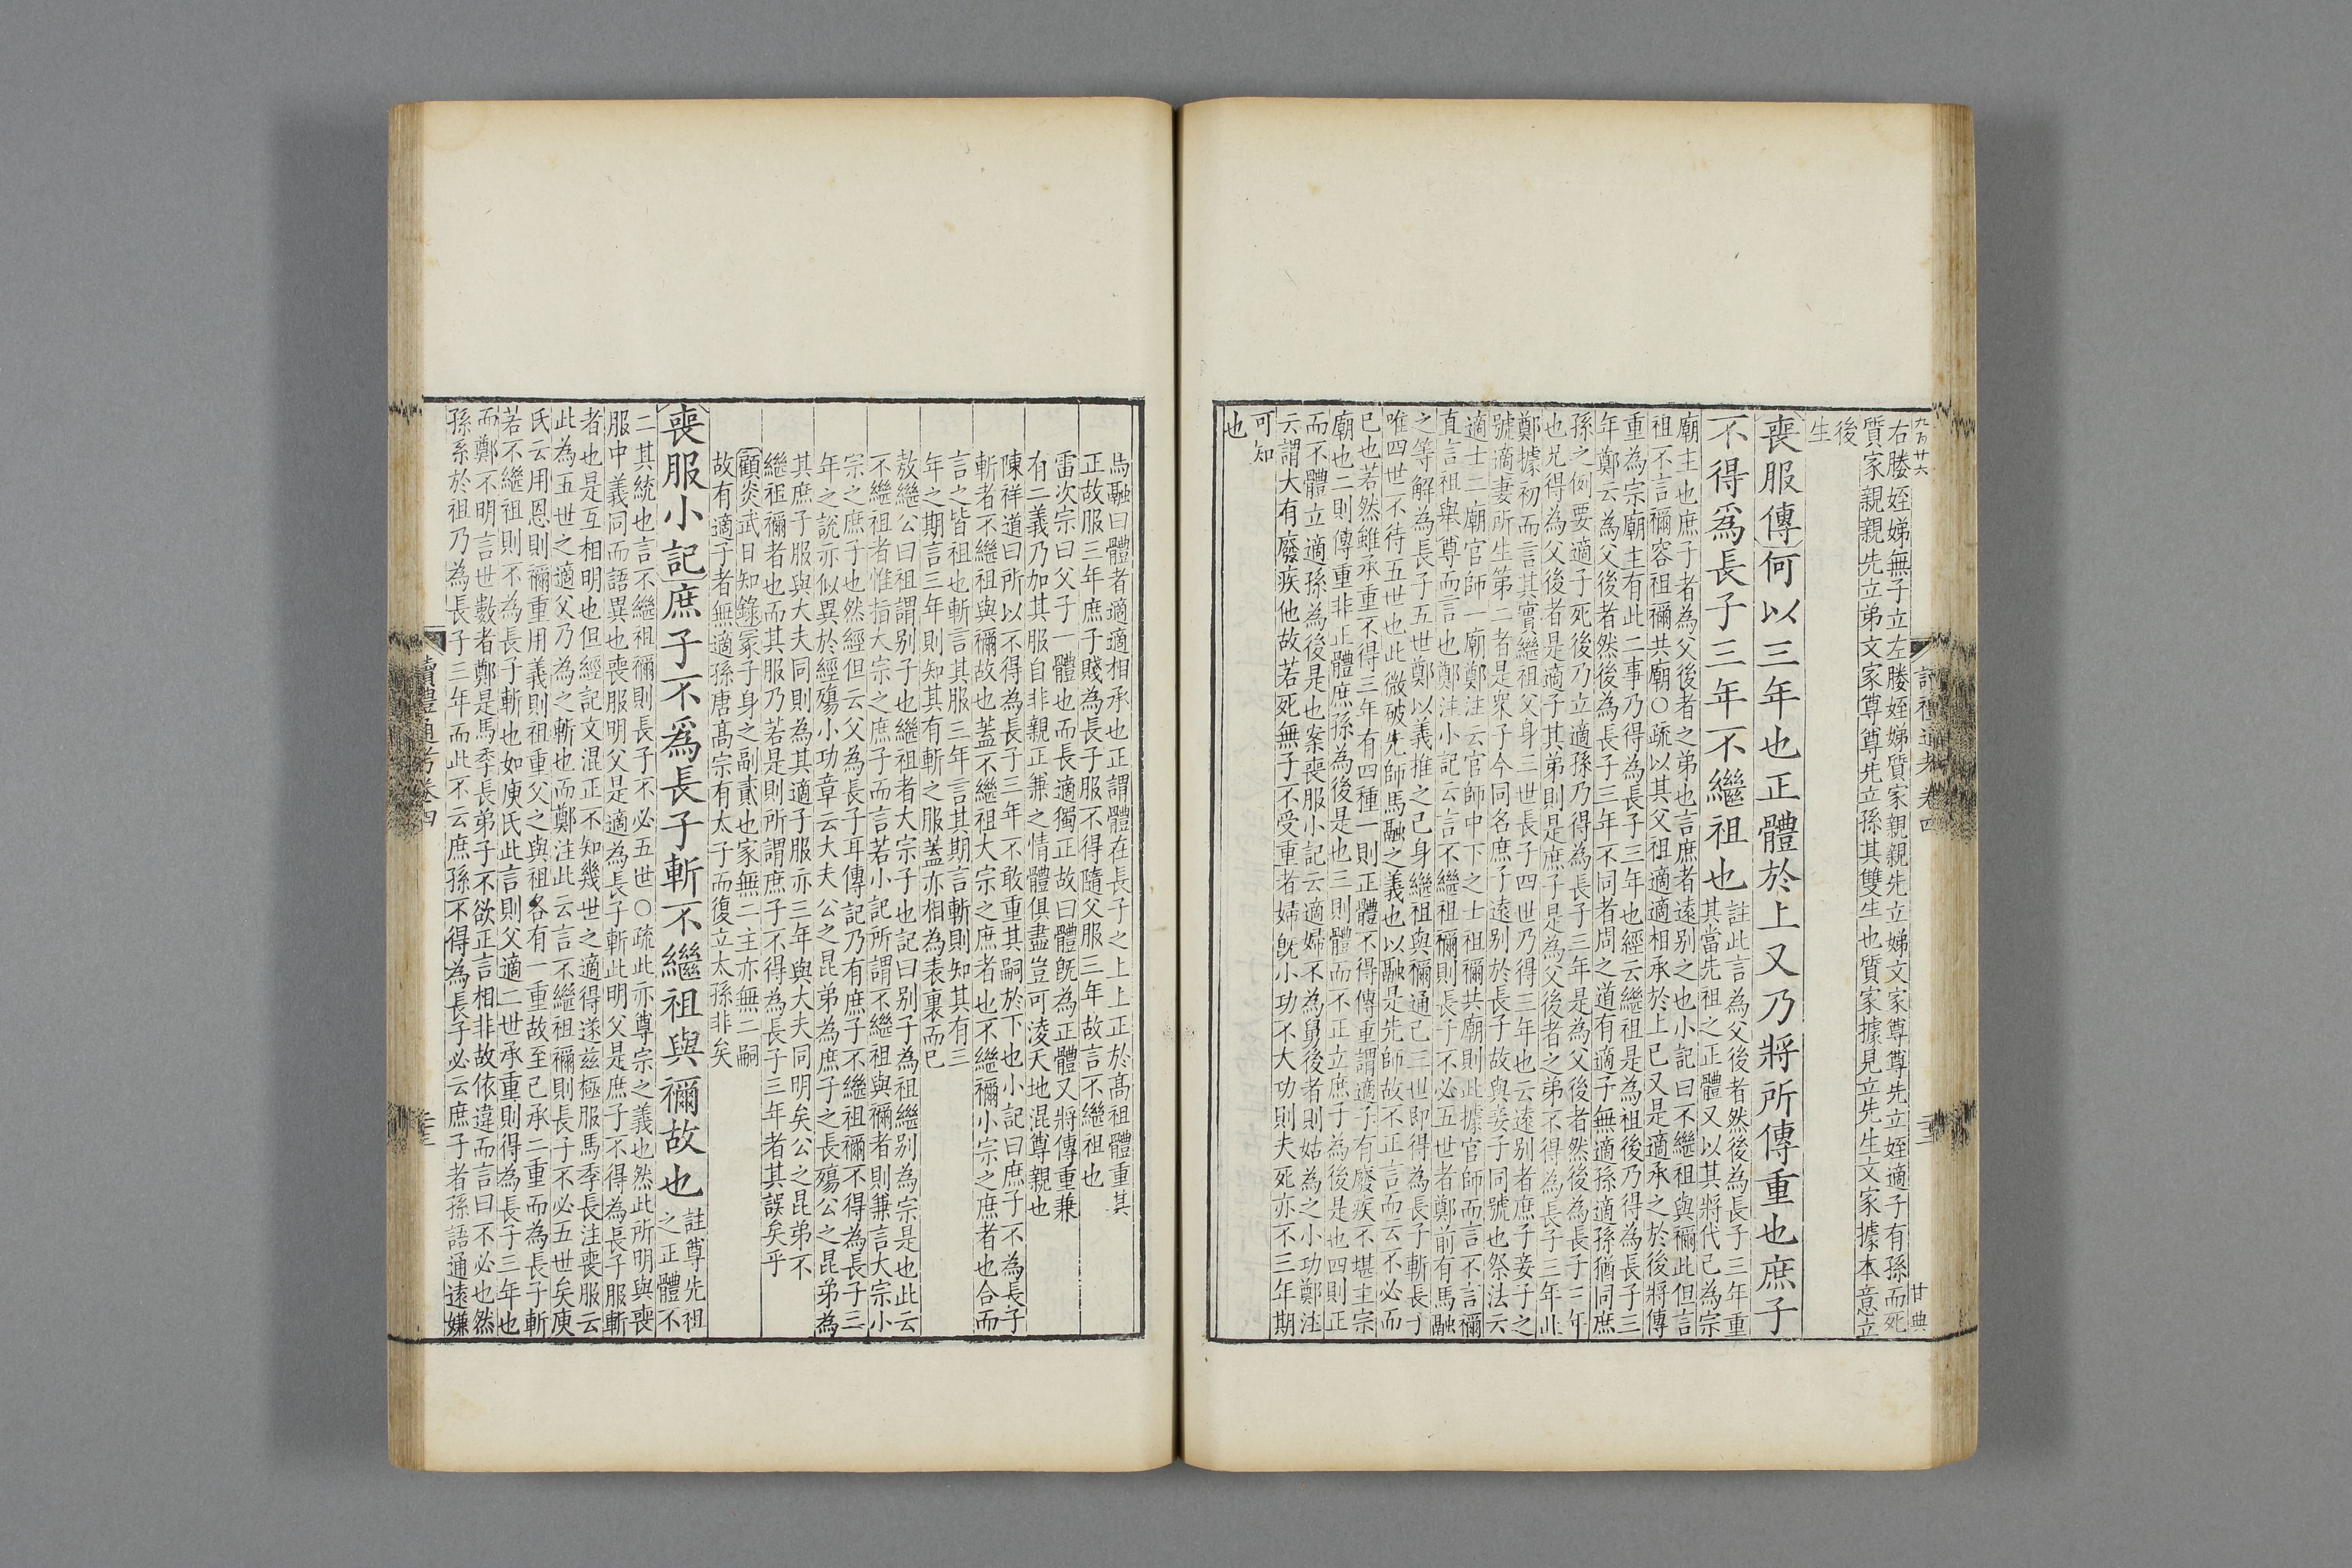 九百廿六
右媵姪娣無子立左媵姪娣質家親親先立娣文家尊尊先立姪適子有孫而死
質家親親先立弟文家尊尊先立孫其雙生也質家據見立先生文家據本意立
後
生
喪服傳何以三年也正體於上又乃將所傳重也庶子
不得爲長子三年不繼祖也
註此言為父後者然後為長子三年重
其當先祖之正體又以其將代己為宗
廟主也庶子者為父後者之弟也言庶者遠別之也小記曰不繼祖與禰此但言
祖不言禰容祖禰共廟○疏以其父祖適適相承於上己又是適承之於後將傳
重為宗廟主有此二事乃得為長子三年也經云繼祖是為祖後乃得為長子三
年鄭云為父後者然後為長子三年不同者周之道有適子無適孫適孫猶同庶
孫之例要適子死後乃立適孫乃得為長子三年是為父後者然後為長子三年
也兄得為父後者是適子其弟則是庶子是為父後者之弟不得為長子三年此
鄭據初而言其實繼祖父身三世長子四世乃得三年也云遠別者庶子妾子之
號適妻所生第二者是眾子今同名庶子遠別於長子故與妾子同號也祭法云
適士二廟官師一廟鄭注云官師中下之士祖禰共廟則此據官師而言不言禰
直言祖舉尊而言也鄭注小記云言不繼祖禰則長子不必五世者鄭前有馬融
之等解為長子五世鄭以義推之己身繼祖與禰通己三世即得為長子斬長子
唯四世不待五世也此微破先師馬融之義也以融是先師故不正言而云不必而
已也若然雖承重不得三年有四種一則正體不得傳重謂適子有廢疾不堪主宗
廟也二則傳重非正體庶孫為後是也三則體而不正立庶子為後是也四則正
而不體立適孫為後是也案喪服小記云適婦不為舅後者則姑為之小功鄭注
云謂大有廢疾他故若死無子不受重者婦既小功不大功則夫死亦不三年期
可知
也
馬融曰體者適適相承也正謂體在長子之上上正於高祖體重其
正故服三年庶子賤為長子服不得隨父服三年故言不繼祖也
雷次宗曰父子一體也而長適獨正故曰體既為正體又將傳重兼
有二義乃加其服自非親正兼之情體俱盡豈可淩天地混尊親也
陳祥道曰所以不得為長子三年不敢重其嗣於下也小記曰庶子不為長子
斬者不繼祖與禰故也蓋不繼祖大宗之庶者也不繼禰小宗之庶者也合而
言之皆祖也斬言其服三年言其期言斬則知其有三
年之期言三年則知其有斬之服蓋亦相為表裏而已
敖繼公曰祖謂別子也繼祖者大宗子也記曰別子為祖繼別為宗是也此云
不繼祖者惟指大宗之庶子而言若小記所謂不繼祖與禰者則兼言大宗小
宗之庶子也然經但云父為長子耳傳記乃有庶子不繼祖禰不得為長子三
年之說亦似異於經殤小功章云大夫公之昆弟為庶子之長殤公之昆弟為
其庶子服與大夫同則為其適子服亦三年與大夫同明矣公之昆弟不
繼祖禰者也而其服乃若是則所謂庶子不得為長子三年者其誤矣乎
顧炎武日知錄冡子身之副貳也家無二主亦無二嗣
故有適子者無適孫唐高宗有太子而復立太孫非矣
喪服小記庶子不爲長子斬不繼祖與禰故也
註尊先祖
之正體不
二其統也言不繼祖禰則長子不必五世○疏此亦尊宗之義也然此所明與喪
服中義同而語異也喪服明父是適為長子斬此明父是庶子不得為長子服斬
者也是互相明也但經記文混正不知幾世之適得遂茲極服馬季長注喪服云
此為五世之適父乃為之斬也而鄭注此云言不繼祖禰則長子不必五世矣庾
氏云用恩則禰重用義則祖重父之與祖各有一重故至己承二重而為長子斬
若不繼祖則不為長子斬也如庾氏此言則父適二世承重則得為長子三年也
而鄭不明言世數者鄭是馬季長弟子不欲正言相非故依違而言曰不必也然
孫系於祖乃為長子三年而此不云庶孫不得為長子必云庶子者孫語通遠嫌
讀禮通考卷四